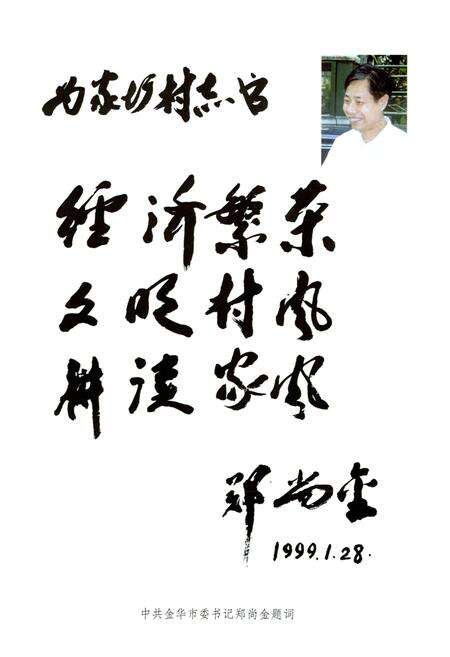 家坊村志
經济繁荣
文明村风
耕读家风
郑尚金
1999.1.28.
中共金华市委书记郑尚金题词